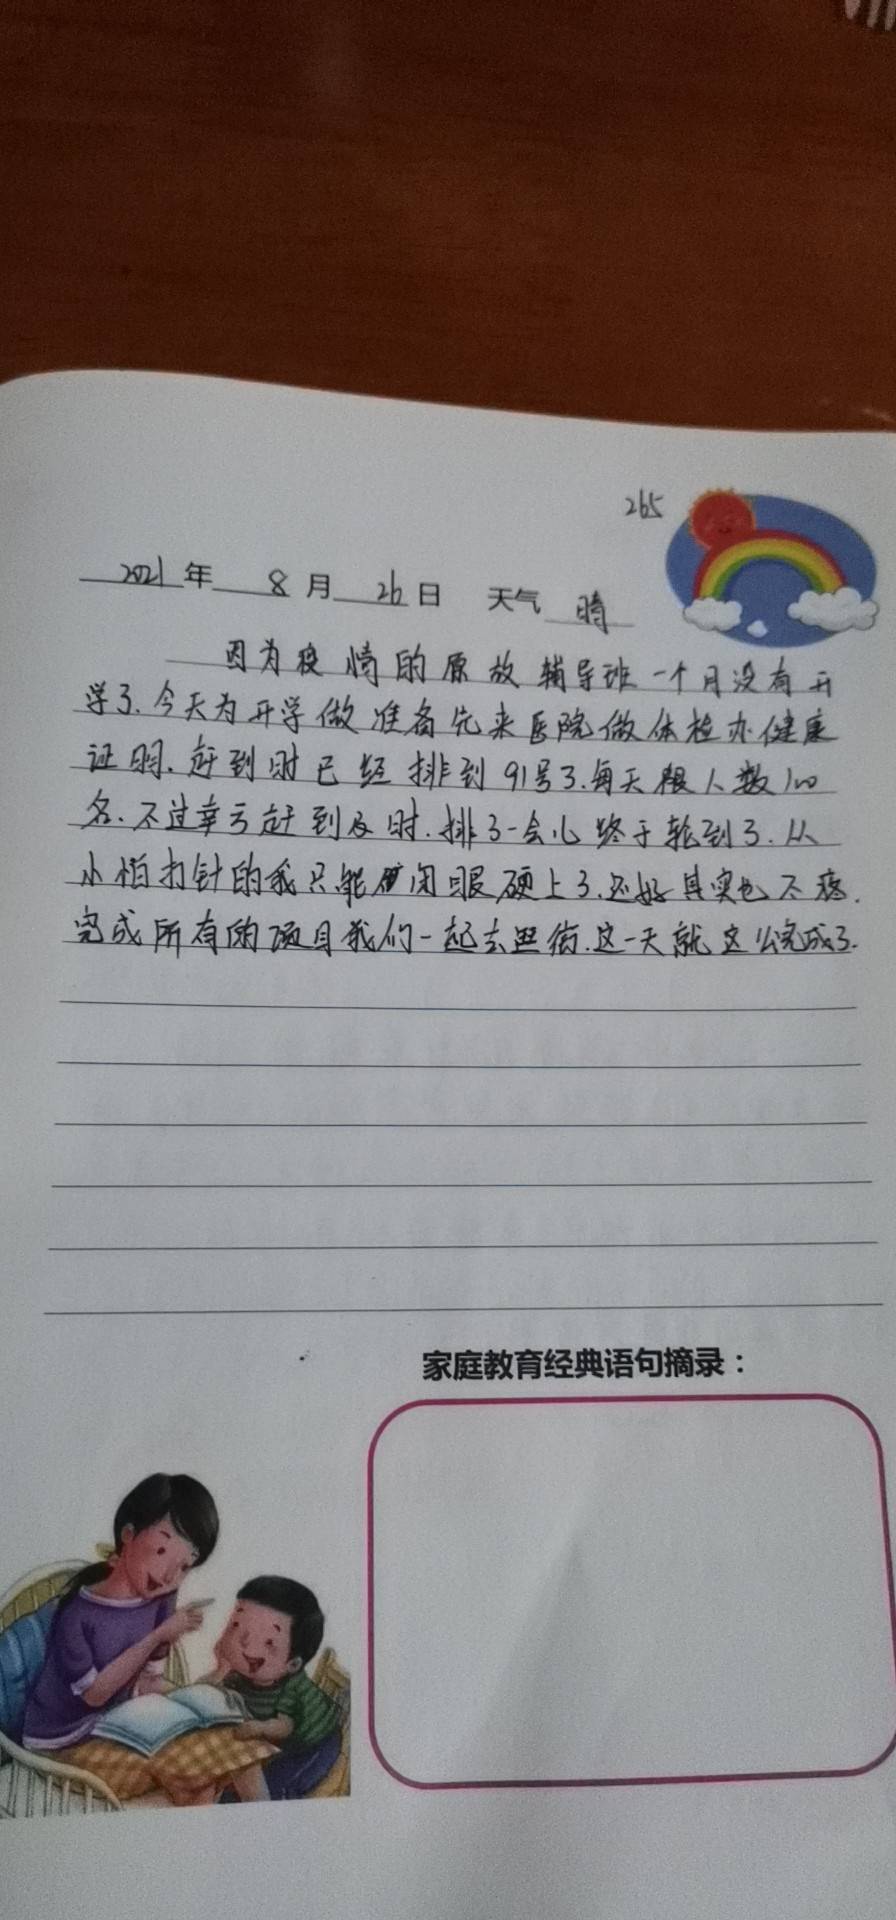 265
2021年8月26日 天气晴
因为疫情的原故辅导班一个月没有开
学了.今天为开学做准备先来医院做体检办健康
证明.赶到时已经排到91号了.每天限人数100
名.不过幸亏赶到及时.排了一会儿终于轮到了.从
小怕打针的我只能闭眼硬上了.还好其实也不疼.
完成所有的项目我们一起去逛街.这一天就这么完成了.
家庭教育经典语句摘录：